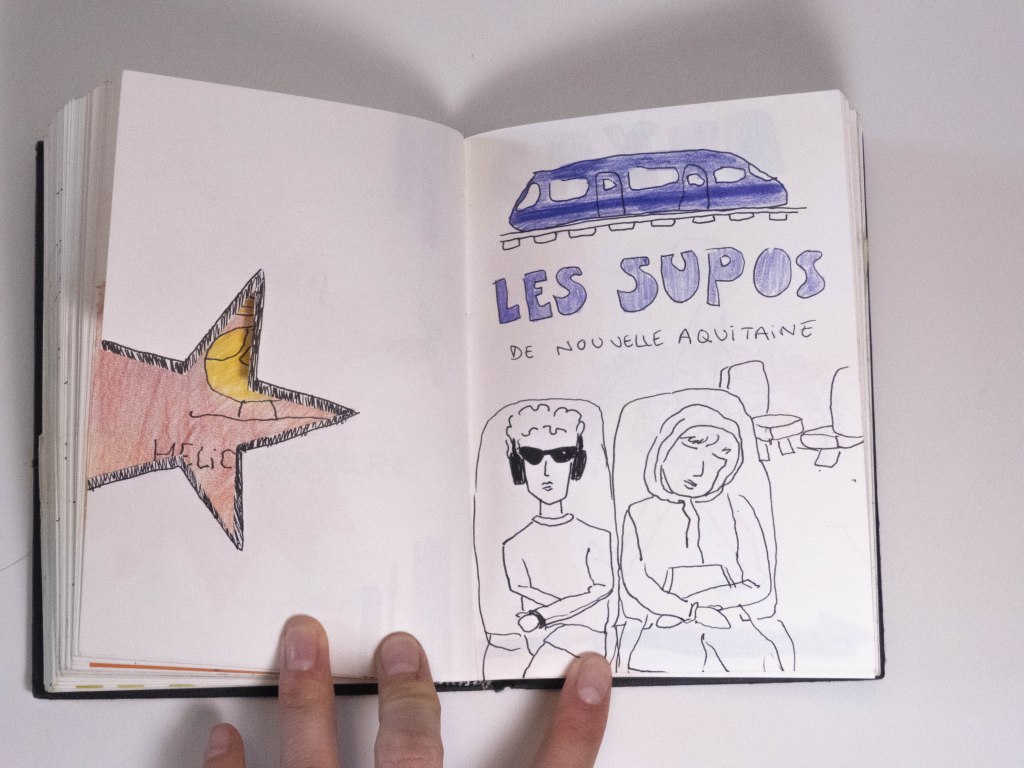 HELIO
LES SUPOS
DE NOUVELLE AQUITAINE